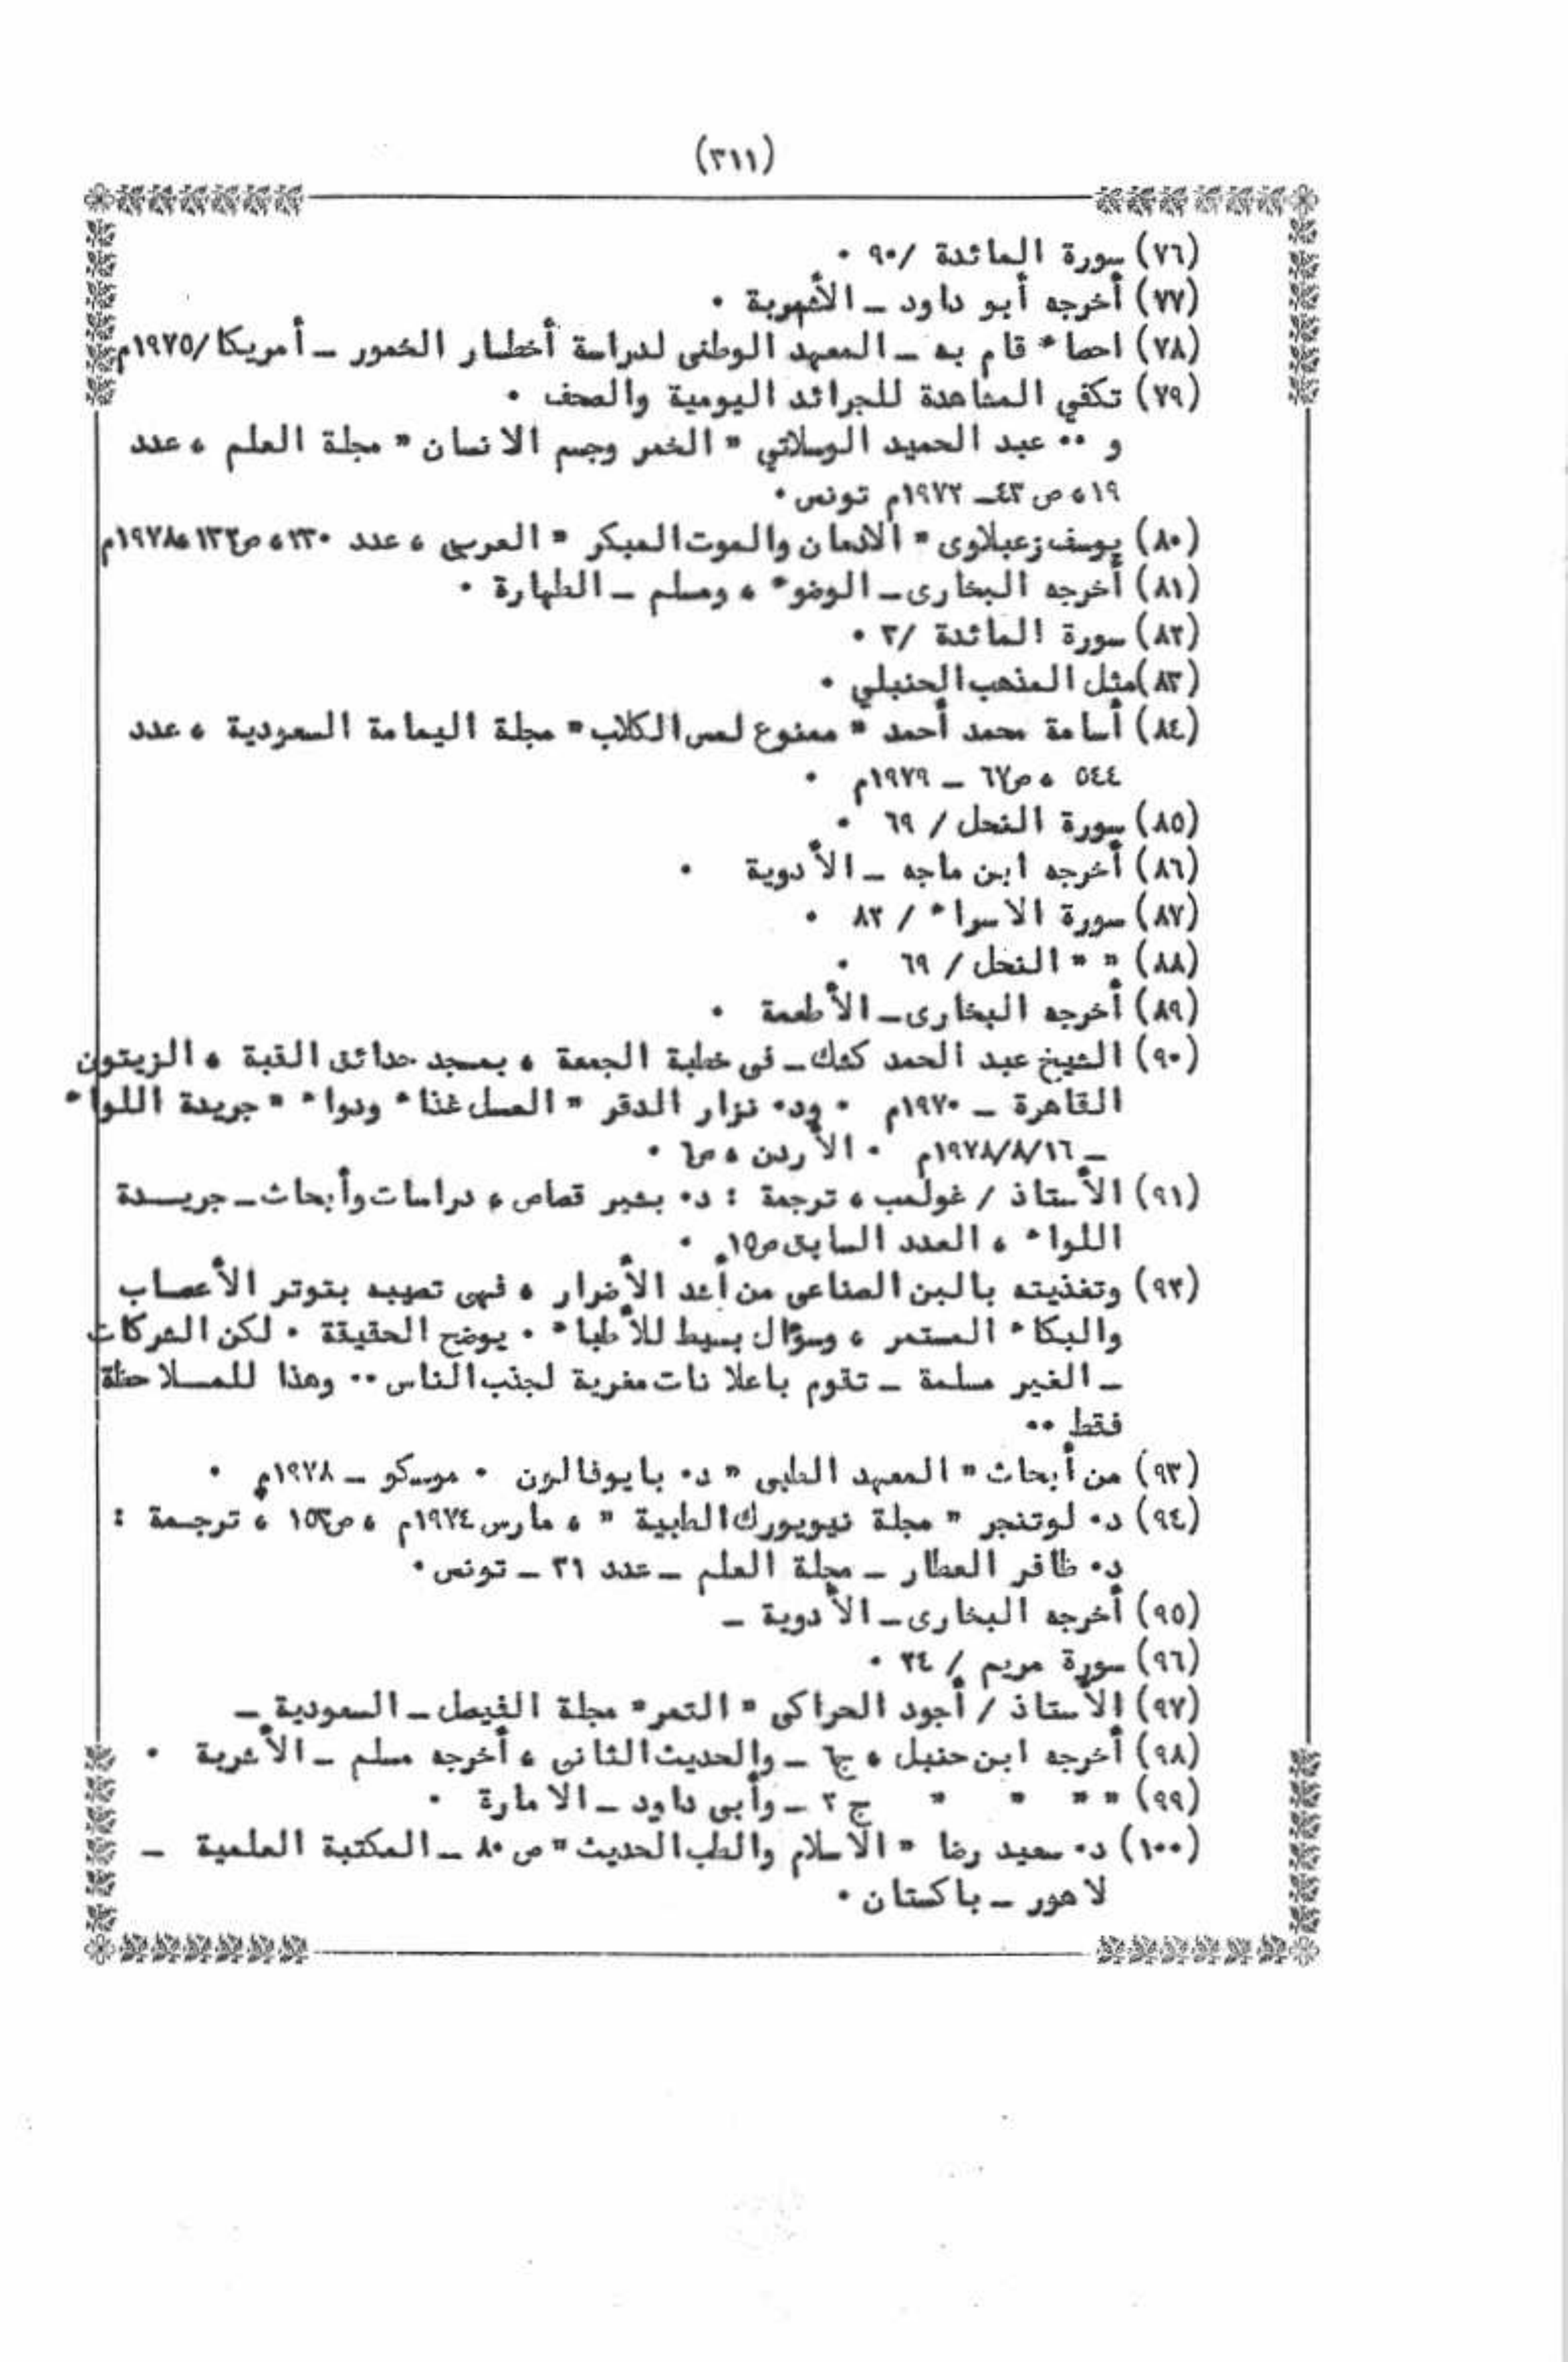 (٣١١)
(٧٦) سورة المائدة /٩٠ ٠
(٧٧) أخرجه أبو داود ــ الأشربة ٠
(٧٨) احصاء قام به ــ المعهد الوطنى لدراسة أخطار الخمور ــ أمريكا/١٩٧٥م
(٧٩) تكفي المشاهدة للجرائد اليومية والصحف ٠
و ٠٠ عبد الحميد الوسلاتي " الخمر وجسم الانسان " مجلة العلم ، عدد
١٩، ص ٤٣ــ ١٩٧٢م تونس ٠
(٨٠) يوسف زعبلاوى " الادمان والموت المبكر " العربي ، عدد ٢٣٠، ص١٣٢، ١٩٧٨م
(٨١) أخرجه البخارى ــ الوضوء ، ومسلم ــ الطهارة ٠
(٨٢) سورة المائدة /٣ ٠
(٨٣) مثل المذهب الحنبلي ٠
(٨٤) أسامة محمد أحمد " ممنوع لمس الكلاب " مجلة اليمامة السعودية ، عدد
٥٤٤ ، ص٦٧ ــ ١٩٧٩م ٠
(٨٥) سورة النحل / ٦٩ ٠
(٨٦) أخرجه ابن ماجه ــ الأدوية ٠
(٨٧) سورة الاسراء / ٨٢ ٠
(٨٨) " " النحل / ٦٩ ٠
(٨٩) أخرجه البخارى ــ الأطعمة ٠
(٩٠) الشيخ عبد الحمد كشك ــ فى خطبة الجمعة ، بمسجد حدائق القبة ، الزيتون
القاهرة ــ ١٩٧٠م ٠ ود٠ نزار الدقر " العسل غذاء ودواء " جريدة اللواء
ــ ١٩٧٨/٨/١٦م ٠ الأردن ، ص٦ ٠
(٩١) الأستاذ / غولمب ، ترجمة : د٠ بشير قصاص ، دراسات وأبحاث ــ جريـــدة
اللواء ، العدد السابق ص١٥ ٠
(٩٢) وتغذيته بالبن الصناعى من أشد الأضرار ، فهى تصيبه بتوتر الأعصاب
والبكاء المستمر ، وسؤال بسيط للأطباء ٠ يوضح الحقيقة ٠ لكن الشركات
ــ الغير مسلمة ــ تقوم باعلانات مغرية لجذب الناس ٠٠ وهذا للمـلاحظة
فقط ٠٠
(٩٣) من أبحاث " المعهد الطبى " د٠ بايوفالون ٠ موسكو ــ ١٩٧٨م ٠
(٩٤) د٠ لوتنجر " مجلة نيويورك الطبية " ، مارس ١٩٧٤م ، ص١٥٣ ، ترجـمة :
د٠ ظافر العطار ــ مجلة العلم ــ عدد ٣١ ــ تونس ٠
(٩٥) أخرجه البخارى ــ الأدوية ــ
(٩٦) سورة مريم / ٢٤ ٠
(٩٧) الأستاذ / أجود الحراكى " التمر " مجلة الفيصل ــ السعودية ــ
(٩٨) أخرجه ابن حنبل ، ج٦ ــ والحديث الثانى ، أخرجه مسلم ــ الأشربة ٠
(٩٩) " " " " ج ٢ ــ وأبى داود ــ الامارة ٠
(١٠٠) د٠ سعيد رضا " الاسلام والطب الحديث " ص ٨٠ ــ المكتبة العلمية ــ
لاهور ــ باكستان ٠